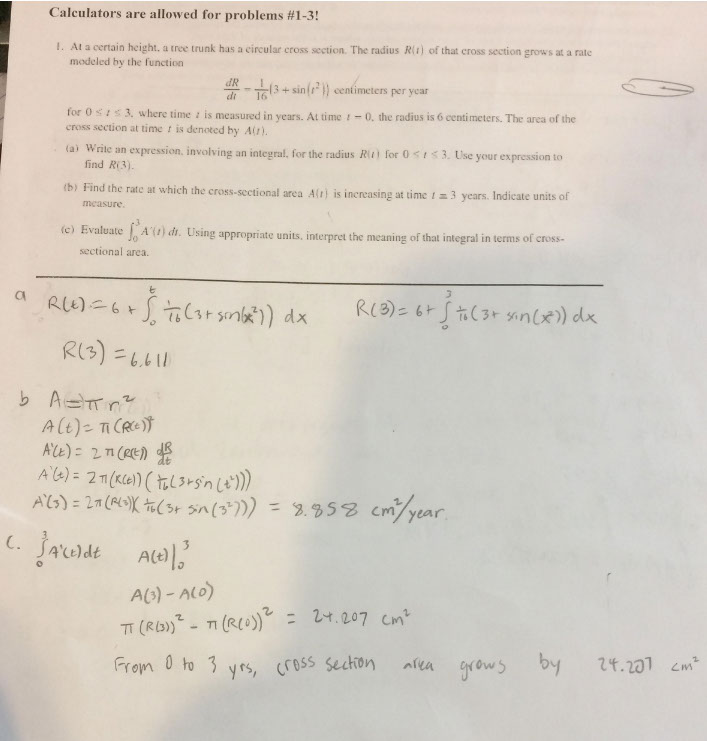 Calculators are allowed for problems #1-3!
1. At a certain height, a tree trunk has a circular cross section. The radius R(t) of that cross section grows at a rate
modeled by the function
dR/dt = 1/16 (3 + sin(t²)) centimeters per year
for 0 ≤ t ≤ 3, where time t is measured in years. At time t = 0, the radius is 6 centimeters. The area of the
cross section at time t is denoted by A(t).
(a) Write an expression, involving an integral, for the radius R(t) for 0 ≤ t ≤ 3. Use your expression to
find R(3).
(b) Find the rate at which the cross-sectional area A(t) is increasing at time t = 3 years. Indicate units of
measure.
(c) Evaluate ∫₀³ A'(t) dt. Using appropriate units, interpret the meaning of that integral in terms of cross-
sectional area.
a R(t) = 6 + ∫₀ᵗ 1/16 (3 + sin(x²)) dx R(3) = 6 + ∫₀³ 1/16 (3 + sin(x²)) dx
R(3) = 6.611
b A = πr²
A(t) = π(R(t))²
A'(t) = 2π(R(t)) dR/dt
A'(t) = 2π(R(t))(1/16(3+sin(t²)))
A'(3) = 2π(R(3))(1/16(3+ sin(3²))) = 8.858 cm²/year.
C. ∫₀³ A'(t)dt A(t)|₀³
A(3) - A(0)
π(R(3))² - π(R(0))² = 24.207 cm²
From 0 to 3 yrs, cross section area grows by 24.207 cm²